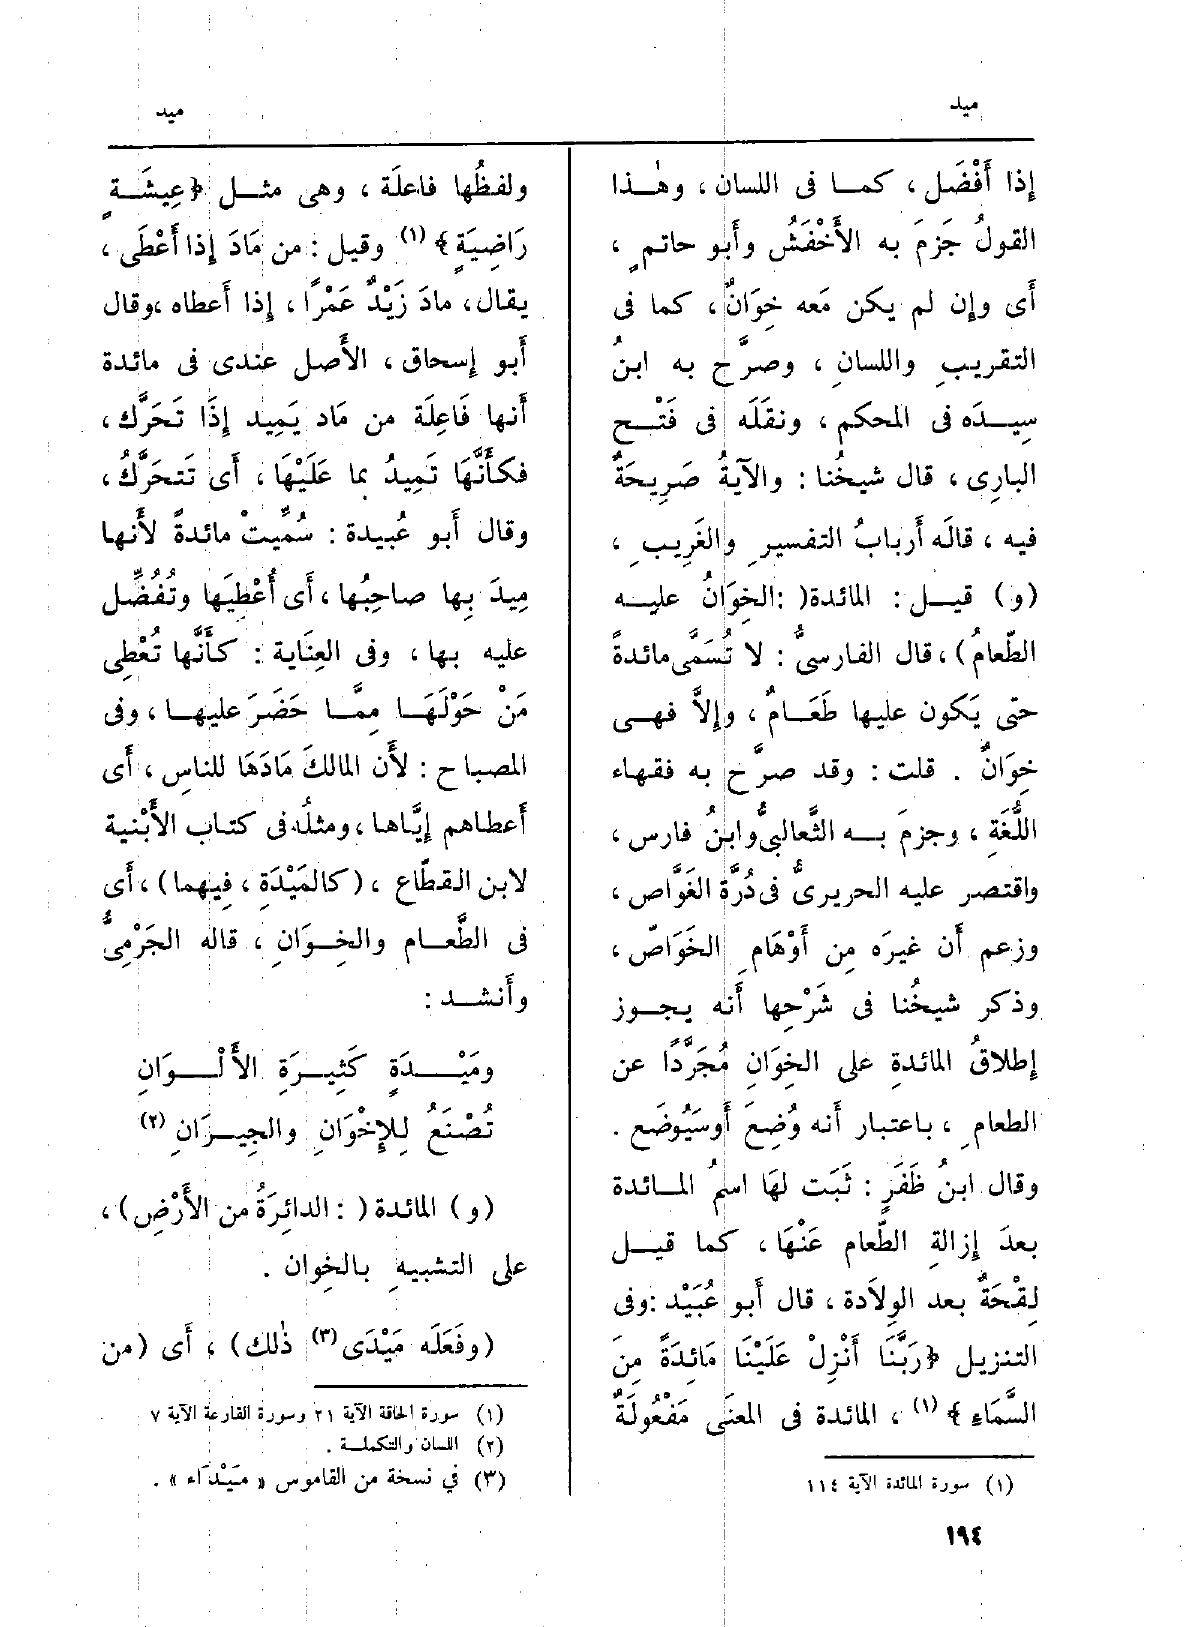 ميد
ميد
إذا أَفْضَل ، كمـا فى اللسان ، وهٰـذا
القولُ جَزمَ به الأَخْفَشُ وأَبو حاتمٍ ،
أَى وإن لم يكن مَعه خِوَانٌ ، كما فى
التقريبِ واللسانِ ، وصرَّح به ابنُ
سِيـدَه فى المحكم ، ونقَلَه فى فَتْـحِ
البارِى ، قال شيخُنا : والآيةُ صَرِيحَةٌ
فيه ، قالَه أَربابُ التفسيرِ والغَرِيبِ ،
(و) قيـل : المائدة( :الخِوَانُ عليـه
الطَّعامُ) ، قال الفارسىُّ : لا تُسَمَّى مائدةً
حتى يَكون عليها طَعَـامٌ ، وإلاَّ فهـى
خِوَانٌ . قلت : وقد صرَّح به فقهاء
اللُّغَةِ ، وجزمَ بـه الثَّعالبىُّ وابنُ فارس ،
واقتصر عليه الحريرىُّ فى دُرَّة الغَوَّاص ،
وزعم أَن غيرَه مِن أَوْهَامِ الخَوَاصّ ،
وذكر شيخُنا فى شَرْحِها أَنه يجـوز
إطلاقُ المائدةِ على الخِوَانِ مُجَرَّدًا عن
الطعامِ ، باعتبار أَنه وُضِعَ أَوسَيُوضَع .
وقال ابنُ ظَفَرٍ : ثَبَت لها اسمُ المـائدة
بعدَ إزالةِ الطَّعام عَنْهَا ، كما قيـل
لِقْحَةٌ بعد الوِلَادة ، قال أَبو عُبَيْد :وفى
التنزيل ﴿رَبَّنَا أَنْزِلْ عَلَيْنَا مَائِدَةً مِنَ
السَّمَاءِ﴾ (١) ، المائدة فى المعنَى مَفْعُولَةٌ
(١) سورة المائدة الآية ١١٤
ولفظُها فاعلَة ، وهى مثـل ﴿عِيشَـةٍ
رَاضِيَةٍ﴾ (١) وقيل : من مَادَ إذا أَعْطَى ،
يقال، مادَ زَيْدٌ عَمْرًا ، إذا أَعطاه ،وقال
أَبو إسحاق ، الأَصل عندى فى مائدة
أَنها فَاعِلَة من مَاد يَمِيد إِذَا تَحَرَّك ،
فكأَنَّهَا تَمِيدُ بما عَلَيْهَا ، أَى تَتحَرَّكُ ،
وقال أَبو عُبيدة : سُمِّيتْ مائدةً لأَنها
مِيدَ بِها صاحِبُها ، أَى أُعْطِيَها وتُفُضِّل
عليه بها ، وفى العِنَاية : كأَنَّها تُعْطِى
مَنْ حَوْلَهَـا مِمَّـا حَضَرَ عليهـا ، وفى
المصباح : لأَن المالكَ مَادَهَا للناسِ ، أَى
أَعطاهم إيَّاهـا ، ومثلُه فى كتاب الأَبْنية
لابن القطَّاع ، (كالمَيْدَةِ ، فِيهما) ، أَى
فى الطَّعـام والخِـوَانِ ، قاله الجَرْمِىُّ
وأَنشـد :
ومَيْـدَةٍ كَثِيـرَةِ الأَلْـوَانِ
تُصْنَعُ لِلإِخْوَانِ والجِيـرَانِ (٢)
(و) المائدة( : الدائرَةُ من الأَرْضِ) ،
على التشبيهِ بالخِوان .
(وفَعَلَه مَيْدَى (٣) ذٰلك) ، أَى (من
(١) سورة الحاقة الآية ٢١ وسورة القارعة الآية ٧
(٢) اللسان والتكملـة .
(٣) في نسخة من القاموس « مَيْدَاء » .
١٩٤